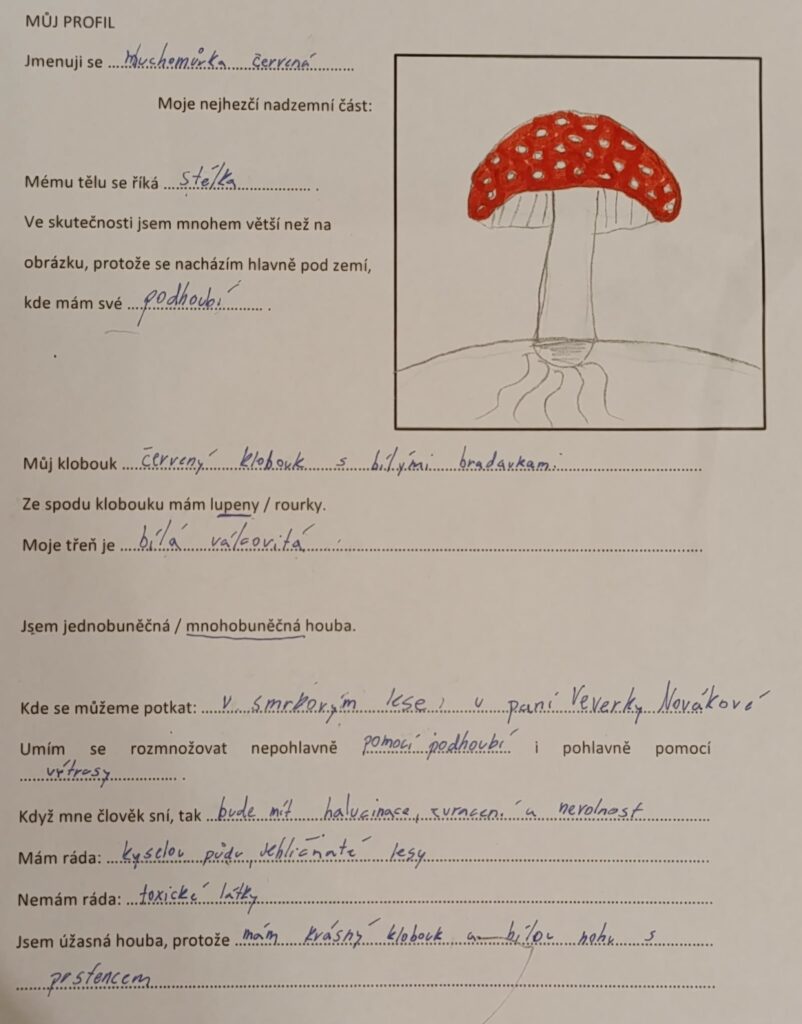 MŮJ PROFIL
Jmenuji se Muchomůrka červená
Moje nejhezčí nadzemní část:
Mému tělu se říká stélka.
Ve skutečnosti jsem mnohem větší než na
obrázku, protože se nacházím hlavně pod zemí,
kde mám své podhoubí.
Můj klobouk červený klobouk s bílými bradavkami
Ze spodu klobouku mám lupeny / rourky.
Moje třeň je bílá válcovitá
Jsem jednobuněčná / mnohobuněčná houba.
Kde se můžeme potkat: v smrkovým lese, u paní Veverky Novákové
Umím se rozmnožovat nepohlavně pomocí podhoubí i pohlavně pomocí
výtrusy.
Když mne člověk sní, tak bude mít halucinace, zvracení a nevolnost
Mám ráda: kyselou půdu, jehličnaté lesy
Nemám ráda: toxické látky
Jsem úžasná houba, protože mám krásný klobouk a bílou nohu s
prstencem